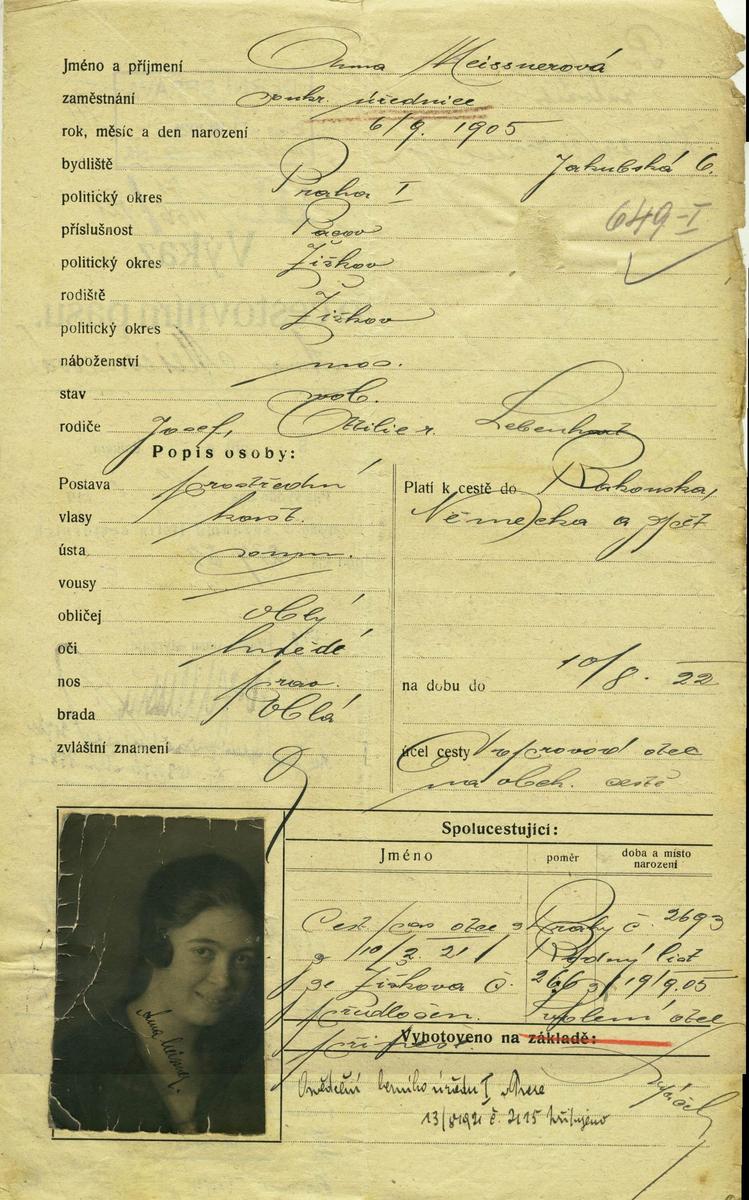 Jméno a příjmení Anna Meissnerová
zaměstnání soukr. úřednice
rok, měsíc a den narození 6/9. 1905
bydliště Jakubská 6.
politický okres Praha I
649-I
příslušnost Pacov
politický okres Žižkov
rodiště Žižkov
politický okres
náboženství mos.
stav svob.
rodiče Josef, Otilie r. Lebenhart
Popis osoby:
Postava prostřední
vlasy kašt.
ústa soum.
vousy
obličej oblý
oči hnědé
nos prav.
brada Oblá
zvláštní znamení
Platí k cestě do Rakouska,
Německa a zpět
na dobu do 10/8. 22
účel cesty Doprovod otce
na obch. cestě
Spolucestující:
Jméno poměr doba a místo narození
Cest. pas otce z Prahy č. 2693
z /10/2. 21/ Rodný list
ze Žižkova č. 266 z /19/9.05
předložen. Svolení otce
Vyhotoveno na základě:
při
Anna Meissner
berního úřadu I v Praze
13/8 1921 č. 2115